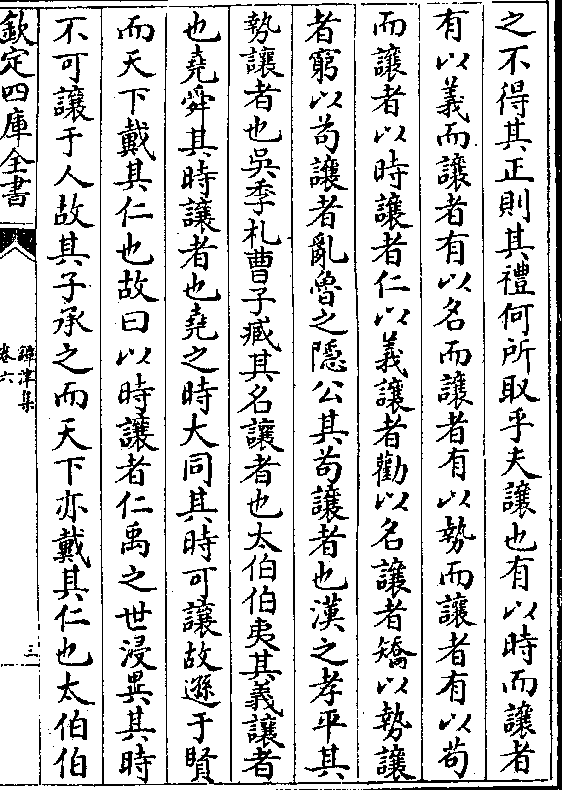 之不得其正則其禮何所取乎夫讓也有以時而讓者
有以義而讓者有以名而讓者有以勢而讓者有以苟
而讓者以時讓者仁以義讓者勸以名讓者矯以勢讓
者窮以苟讓者亂魯之隱公其苟讓者也漢之孝平其
勢讓者也吳季札曹子臧其名讓者也太伯伯夷其義讓者
也堯舜其時讓者也堯之時大同其時可讓故遜于賢
而天下戴其仁也故曰以時讓者仁禹之世浸異其時
不可讓于人故其子承之而天下亦戴其仁也太伯伯
欽定四庫全書
鐔津集
卷六
三